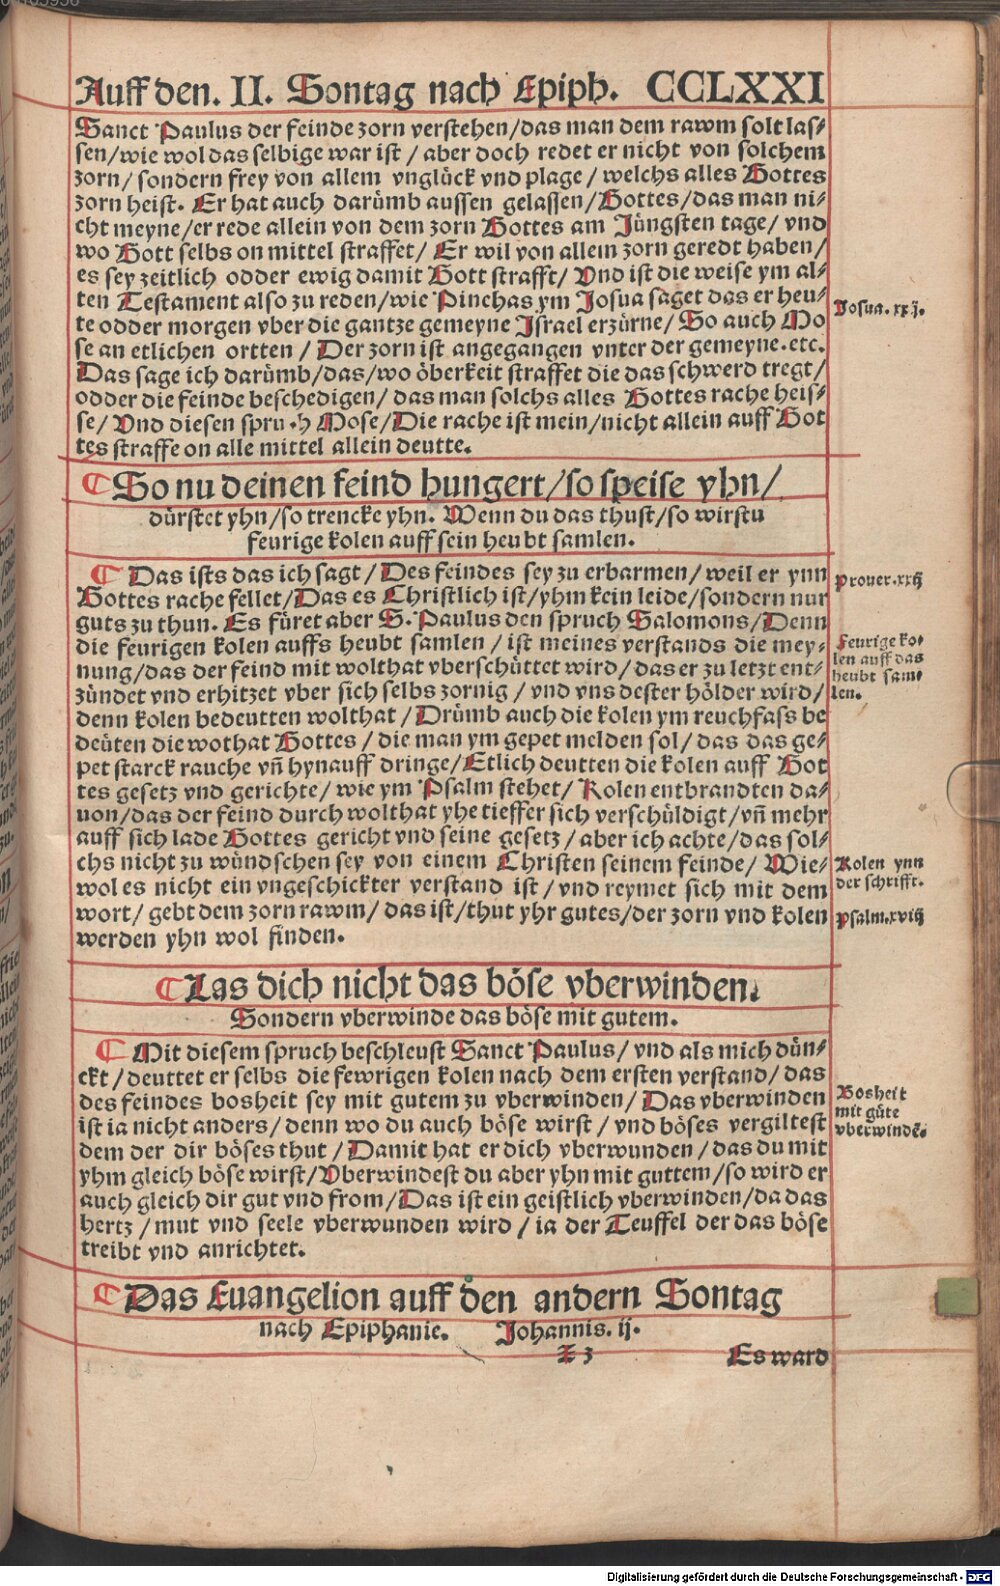 Auff den. II. Sontag nach Epiph. CCLXXI
Sanct Paulus der feinde zorn verstehen/das man dem rawm solt las⸗
sen/wie wol das selbige war ist / aber doch redet er nicht von solchem
zorn/ sondern frey von allem vnglück vnd plage / welchs alles Gottes
zorn heist. Er hat auch darümb aussen gelassen/Gottes/das man ni⸗
cht meyne/er rede allein von dem zorn Gottes am Jüngsten tage/ vnd
wo Gott selbs on mittel straffet/ Er wil von allem zorn geredt haben/
es sey zeitlich odder ewig damit Gott strafft/ Vnd ist die weise ym al⸗
ten Testament also zu reden/wie Pinchas ym Josua saget das er heu⸗
te odder morgen vber die gantze gemeyne Israel erzürne/ So auch Mo
se an etlichen ortten / Der zorn ist angegangen vnter der gemeyne.etc.
Das sage ich darümb/das/wo öberkeit straffet die das schwerd tregt/
odder die feinde beschedigen/ das man solchs alles Gottes rache heis⸗
se/ Vnd diesen spruch Mose/Die rache ist mein/nicht allein auff Got
tes straffe on alle mittel allein deutte.
Josua. xxij.
¶ So nu deinen feind hungert/so speise yhn/
dürstet yhn/so trencke yhn. Wenn du das thust/so wirstu
feurige kolen auff sein heubt samlen.
¶ Das ists das ich sagt/ Des feindes sey zu erbarmen/ weil er ynn
Gottes rache fellet/Das es Christlich ist/yhm kein leide/sondern nur
guts zu thun. Es füret aber S. Paulus den spruch Salomons/Denn
die feurigen kolen auffs heubt samlen / ist meines verstands die mey⸗
nung/das der feind mit wolthat vberschüttet wird/das er zu letzt ent⸗
zündet vnd erhitzet vber sich selbs zornig / vnd vns dester hölder wird/
denn kolen bedeutten wolthat / Drümb auch die kolen ym reuchfass be
deüten die wothat Gottes / die man ym gepet melden sol/ das das ge⸗
pet starck rauche vñ hynauff dringe/Etlich deutten die kolen auff Got
tes gesetz vnd gerichte/ wie ym Psalm stehet/ Kolen entbrandten da⸗
uon/das der feind durch wolthat yhe tieffer sich verschüldigt/vñ mehr
auff sich lade Gottes gericht vnd seine gesetz / aber ich achte/das sol⸗
chs nicht zu wündschen sey von einem Christen seinem feinde/ Wie⸗
wol es nicht ein vngeschickter verstand ist/ vnd reymet sich mit dem
wort/ gebt dem zorn rawm/ das ist/thut yhr gutes/der zorn vnd kolen
werden yhn wol finden.
Prouer.xxij
Feurige ko⸗
len auff das
heubt sam⸗
len.
Kolen ynn
der schrifft.
Psalm.xviij
¶ Las dich nicht das böse vberwinden.
Sondern vberwinde das böse mit gutem.
¶ Mit diesem spruch beschleust Sanct Paulus/ vnd als mich dün⸗
ckt / deuttet er selbs die fewrigen kolen nach dem ersten verstand/ das
des feindes bosheit sey mit gutem zu vberwinden/ Das vberwinden
ist ia nicht anders/ denn wo du auch böse wirst / vnd böses vergiltest
dem der dir böses thut / Damit hat er dich vberwunden/das du mit
yhm gleich böse wirst/Vberwindest du aber yhn mit guttem/so wird er
auch gleich dir gut vnd from/Das ist ein geistlich vberwinden/da das
hertz / mut vnd seele vberwunden wird / ia der Teuffel der das böse
treibt vnd anrichtet.
Bosheit
mit güte
vberwindē.
¶ Das Euangelion auff den andern Sontag
nach Epiphanie. Johannis. ij.
X 3 Es ward
Digitalisierung gefördert durch die Deutsche Forschungsgemeinschaft - DFG